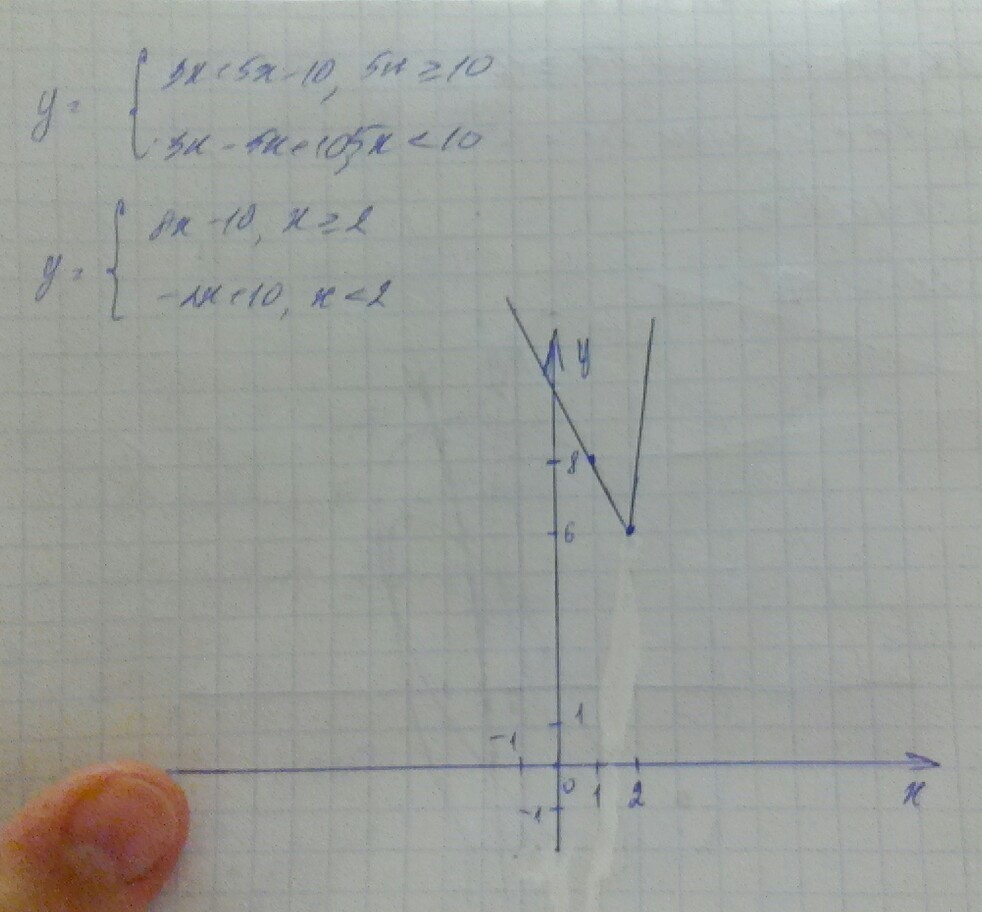 y = { 3x+5x-10, 5x ≥ 10
3x-5x+10, 5x < 10
y = { 8x-10, x ≥ 2
-2x+10, x < 2
y
8
6
1
-1
0 1 2 x
-1